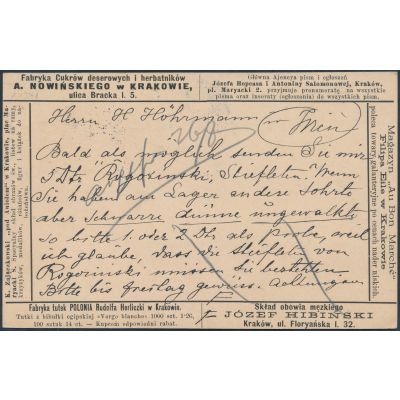 Fabryka Cukrów deserowych i herbatników
A. NOWIŃSKIEGO w KRAKOWIE,
ulica Bracka l. 5.
Główna Ajencya pism i ogłoszeń
Józefa Hopcasa i Antoniny Salomonowej, Kraków,
pl. Maryacki 2. przyjmuje prenumeratę na wszystkie
pisma oraz inseraty (ogłoszenia) do wszystkich pism.
Herrn H Höhrmann in Wien
Bald als möglich senden Sie mir
5 Dtz Rogozinski, Stiefleten. Wenn
Sie haben am Lager andere Sohrte
aber Schwarze dünne ungewalkte
so bitte 1. oder 2 Dtz als Probe, weil
ich glaube, dass die Stiefleten von
Rogozinski müssen Sie bestehlen
Bitte bis Freitag gewiss. Achtungsv.
Magazyn „Au Bon Marché"
Filipa Eile w Krakowie
poleca towary galanteryjne po cenach nader niskich.
Fabryka tutek POLONIA Rudolfa Herliczki w Krakowie.
Tutki z bibułki egipskiej «Vergo blanche» 1000 szt. 1·20,
100 sztuk 14 ct. — Kupcom odpowiedni rabat.
Skład obowia męzkiego
JÓZEF HIBINSKI
Kraków, ul. Floryańska l. 32.